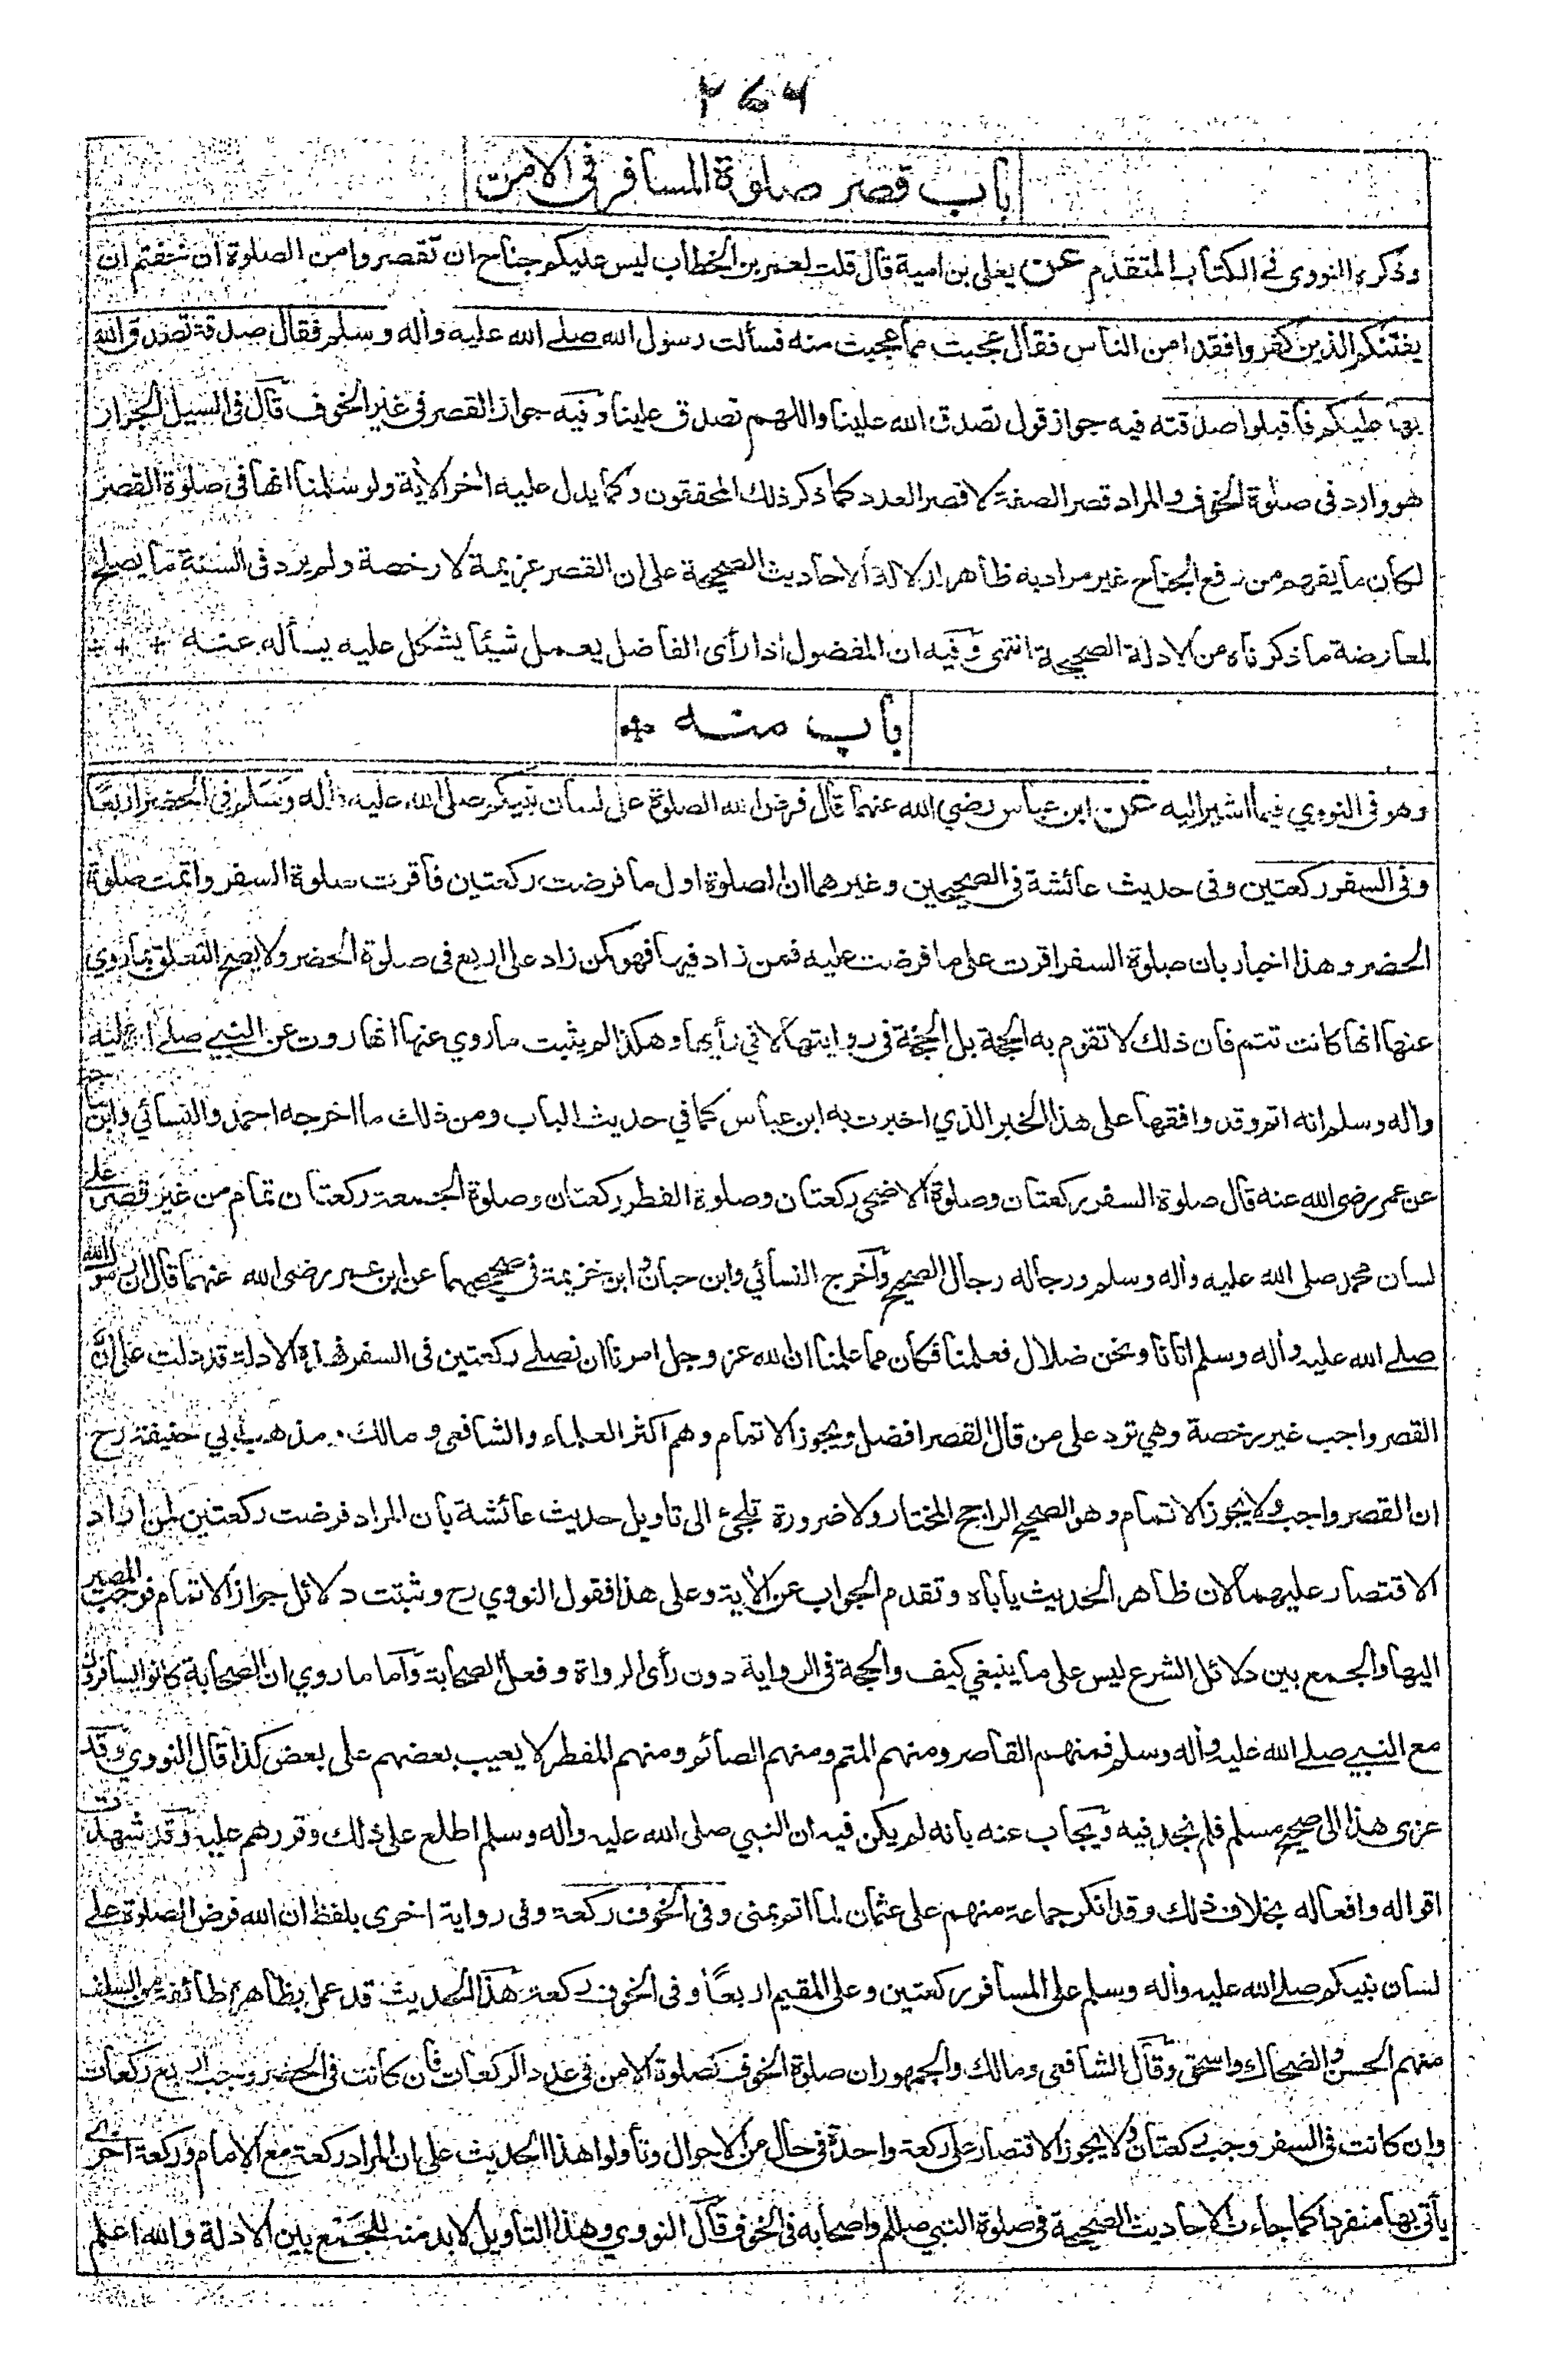 ٢٤٦
باب قصر صلوة المسافر في الامن
وذكره النووي في الكتاب المتقدم عن يعلى بن امية قال قلت لعمر بن الخطاب ليس عليكم جناح ان تقصروا من الصلوة ان خفتم ان
يفتنكم الذين كفروا فقد امن الناس فقال عجبت مما عجبت منه فسألت رسول الله صلى الله عليه واله وسلم فقال صدقة تصدق الله
بها عليكم فاقبلوا صدقته فيه جواز قول تصدق الله علينا واللهم تصدق علينا وفيه جواز القصر في غير الخوف قال في السيل الجرار
هو وارد في صلوة الخوف والمراد قصر الصفة لا قصر العدد كما ذكر ذلك المحققون وكما يدل عليه اخر الاية ولو سلمنا انها في صلوة القصر
لكان ما يفهم من رفع الجناح غير مراد به ظاهره لدلالة الاحاديث الصحيحة على ان القصر عزيمة لا رخصة ولم يرد في السنة ما يصلح
لمعارضة ما ذكرناه من الادلة الصحيحة انتهى وفيه ان المفضول اذا رأى الفاضل يعمل شيئا يشكل عليه يسأله عنه
باب منه
وهو في النووي فيما اشير اليه عن ابن عباس رضي الله عنهما قال فرض الله الصلوة على لسان نبيكم صلى الله عليه واله وسلم في الحضر اربعا
وفي السفر ركعتين وفي حديث عائشة في الصحيحين وغيرهما ان الصلوة اول ما فرضت ركعتين فاقرت صلوة السفر واتمت صلوة
الحضر وهذا اخبار بان صلوة السفر اقرت على ما فرضت عليه فمن زاد فيها فهو كمن زاد على اربع في صلوة الحضر ولا يصح التعلق بما روي
عنها انها كانت تتم فان ذلك لا تقوم به الحجة بل الحجة في روايتها لا في رأيها وهكذا لم يثبت ما روي عنها انها روت عن النبي صلى الله عليه
واله وسلم انه اتم وقد وافقها على هذا الخبر الذي اخبرت به ابن عباس كما في حديث الباب ومن ذلك ما اخرجه احمد والنسائي وابن ماجة
عن عمر رضي الله عنه قال صلوة السفر ركعتان وصلوة الاضحى ركعتان وصلوة الفطر ركعتان وصلوة الجمعة ركعتان تمام من غير قصر على
لسان محمد صلى الله عليه واله وسلم ورجاله رجال الصحيح وأخرج النسائي وابن حبان وابن خزيمة في صحيحيهما عن ابن عمر رضي الله عنهما قال ان رسول الله
صلى الله عليه واله وسلم اتانا ونحن ضلال فعلمنا فكان مما علمنا ان الله عز وجل امرنا ان نصلي ركعتين في السفر فهذه الادلة قد دلت على ان
القصر واجب غير رخصة وهي ترد على من قال القصر افضل ويجوز الاتمام وهم اكثر العلماء والشافعي ومالك. مذهب ابي حنيفة رح
ان القصر واجب ولا يجوز الاتمام وهو الصحيح الراجح المختار ولا ضرورة تلجئ الى تاويل حديث عائشة بان المراد فرضت ركعتين لمن اراد
الاقتصار عليهما لان ظاهر الحديث ياباه وتقدم الجواب عن الأية وعلى هذا فقول النووي رح وثبتت دلائل جواز الاتمام فوجب المصير
اليها والجمع بين دلائل الشرع ليس على ما ينبغي كيف والحجة في الرواية دون رأى الرواة وفعل الصحابة وأما ما روي ان الصحابة كانوا يسافرون
مع النبي صلى الله عليه واله وسلم فمنهم القاصر ومنهم المتم ومنهم الصائم ومنهم المفطر لا يعيب بعضهم على بعض كذا قال النووي وقد
عزى هذا الى صحيح مسلم فلم نجد فيه ويجاب عنه بانه لم يكن فيه ان النبي صلى الله عليه واله وسلم اطلع على ذلك وقررهم عليه وقد شهدت
اقواله وافعاله بخلاف ذلك وقد انكر جماعة منهم على عثمان لما اتم بمنى وفي الخوف ركعة وفي رواية اخرى بلفظ ان الله فرض الصلوة على
لسان نبيكم صلى الله عليه واله وسلم على المسافر ركعتين وعلى المقيم اربعا وفي الخوف ركعة هذا الحديث قد عمل بظاهره طائفة من السلف
منهم الحسن والضحاك واسحق وقال الشافعي ومالك والجمهور ان صلوة الخوف كصلوة الامن في عدد الركعات فان كانت في الحضر وجب اربع ركعات
وان كانت في السفر وجب ركعتان ولا يجوز الاقتصار على ركعة واحدة في حال من الاحوال وتأولوا هذا الحديث على ان المراد ركعة مع الامام وركعة اخرى
يأتي بها منفردا كما جاءت الاحاديث الصحيحة في صلوة النبي صللم واصحابه في الخوف قال النووي وهذا التاويل لا بد منه للجمع بين الادلة والله اعلم